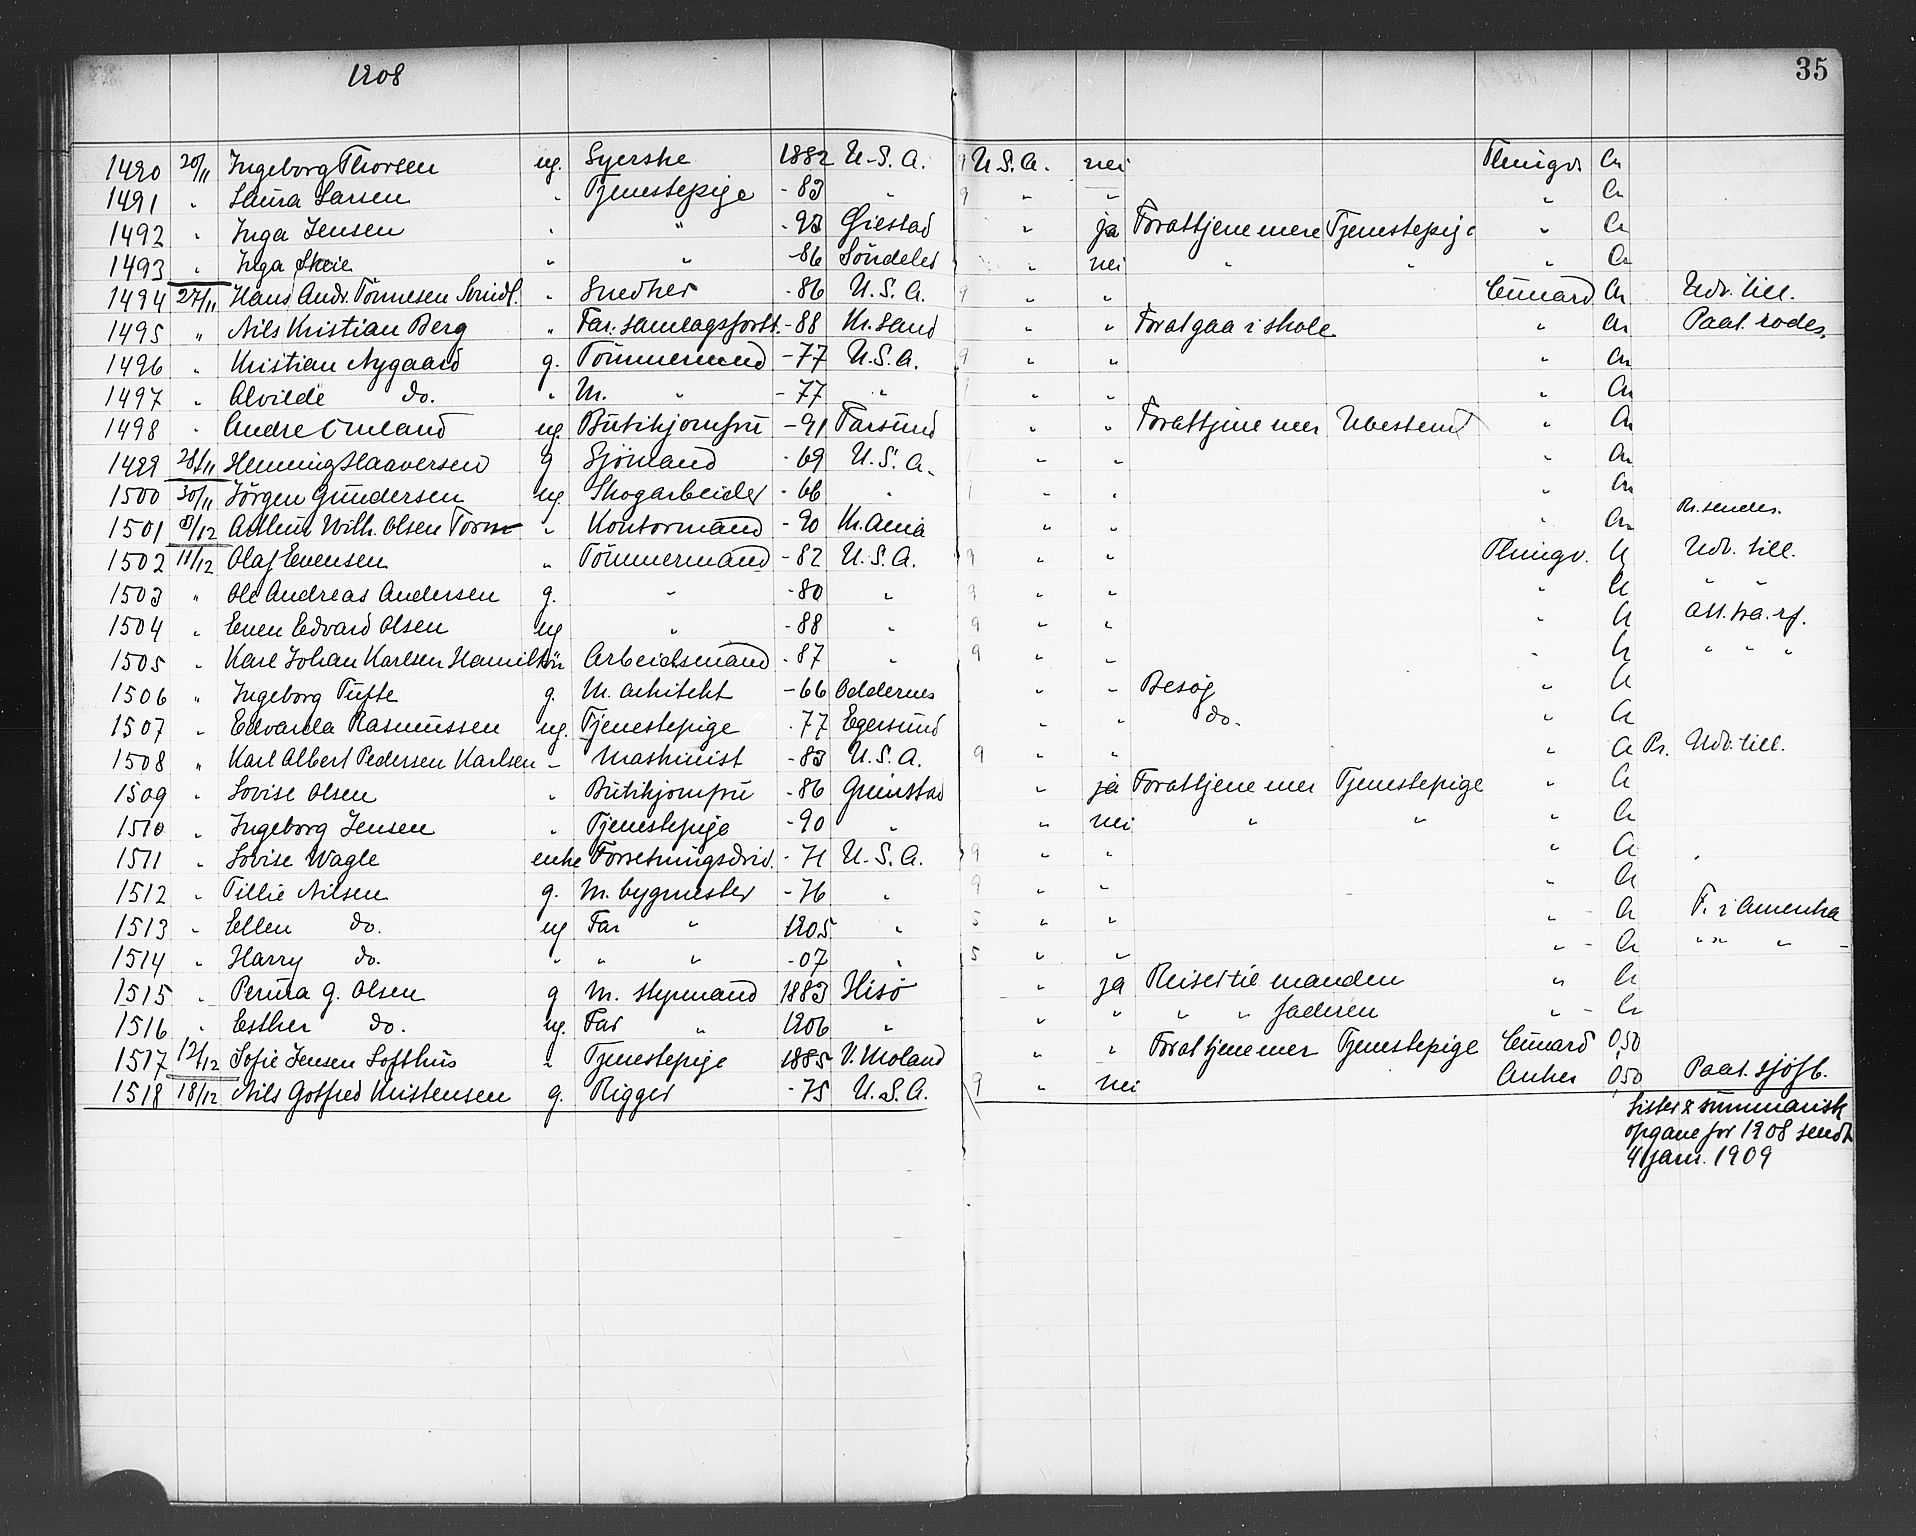 1908
35
1490 20/11 Ingeborg Thorsen ug. Syerske 1882 U.S.A. 9 U.S.A. nei Thingv. Cr
1491 " Laura Larsen " Tjenestepige -83 " 9 " " " Cr
1492 " Inga Jensen " " -93 Øiestad " ja For at tjene mere Tjenestepige " Cr
1493 " Inga Skeie " " -86 Söndeled " nei " " " Cr
1494 27/11 Hans Andr. Tönnesen " Snedker -86 U.S.A. 9 " " Cunard Cr Udv. till.
1495 " Nils Kristian Berg " Far: samlagsforst. -88 Kr.sand " " For at gaa i skole " Cr Paat. rodes.
1496 " Kristian Nygaard g. Tömmermand -77 U.S.A. 9 " " " Cr
1497 " Alvilde do. " M. " -77 " " " " Cr
1498 " Andre Omland ug. Butikjomfru -91 Farsund " " For at tjene mer Ubestemt " Cr
1499 28/11 Henning Haaversen g Sjömand -69 U.S.A. " " " Cr
1500 30/11 Jörgen Gundersen ug. Skogarbeider -66 " " " " Cr
1501 8/12 Arthur Wilh. Olsen " Kontormand -90 Kr.ania " " " Cr Pr. sendes.
1502 11/12 Olaf Evensen " Tömmermand -82 U.S.A. 9 " " Thingv. Cr Udv. till.
1503 " Ole Andreas Andersen g. " -80 " 9 " " " Cr " "
1504 " Even Edvard Olsen ug " -88 " 9 " " " Cr
1505 " Karl Johan Karlsen Hamilton " Arbeidsmand -87 " 9 " " " Cr " " "
1506 " Ingeborg Tufte g. M. arkitekt -66 Oddernes " " Besög " Cr
1507 " Edvarda Rasmussen ug. Tjenestepige -77 Egersund " " do. " Cr
1508 " Karl Albert Pedersen Karlsen - Maskinist -83 U.S.A. 9 " " " Cr Pr. Udv. till.
1509 " Lovise Olsen " Butikjomfru -86 Grimstad " ja For at tjene mer Tjenestepige " Cr
1510 " Ingeborg Jensen " Tjenestepige -90 " " nei " " " Cr
1511 " Lovise Wagle enke Forretningsdriv. -71 U.S.A. 9 " " " Cr
1512 " Tillie Nilsen g. M. bygmester -76 " 9 " " " Cr
1513 " Ellen do. ug Far " 1905 " 5 " " " Cr F. i Amerika
1514 " Harry do. " " " -07 " 5 " " " Cr " " "
1515 " Petrea G. Olsen g M. styrmand 1883 Hisö " ja Reiser til manden " Cr
1516 " Esther do. ug. Far " 1906 " " " " " faderen " Cr
1517 12/12 Sofie Jensen Lofthus " Tjenestepige 1885 V. Moland " " For at tjene mer Tjenestepige Cunard 0,50
1518 18/12 Nils Gotfred Kristensen g. Rigger -75 U.S.A. 9 " nei Anker 0,50 Paat. sjöfb.
Lister & summarisk
opgave for 1908 sendt
4 jan. 1909